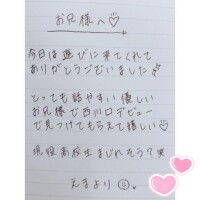 お兄様へ♡
今日は遊びに来てくれて
ありがとうございました
とっても話やすい優しい
お兄様で吉川口デビュー
で見つけてもらえて嬉しい♡
現役高校生まじれもう?笑
えまより☺。